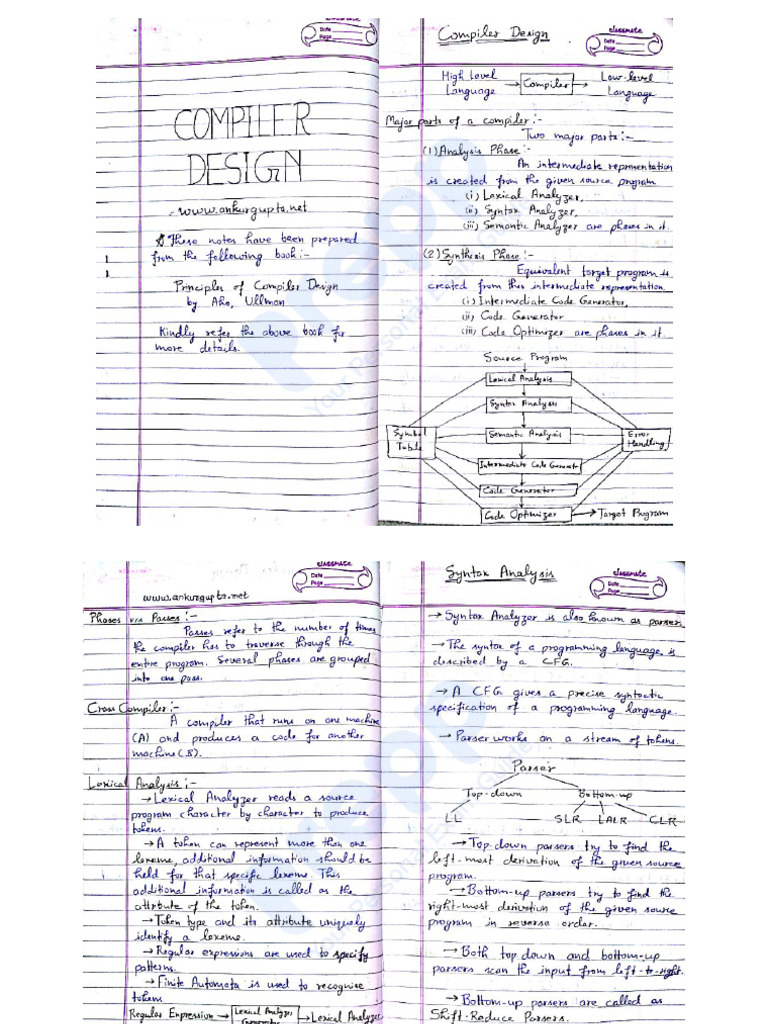 classmate
Date
Page
COMPILER
DESIGN
www.ankurgupta.net
These notes have been prepared
from the following book:-
Principles of Compiler Design
by Aho, Ullman
Kindly refer the above book for
more details.
Compiler Design
classmate
Date
Page
High Level
Language
Compiler
Low-level
Language
Major parts of a compiler:-
Two major parts:-
(1) Analysis Phase:-
An intermediate representation
is created from the given source program
(i) Lexical Analyzer,
(ii) Syntax Analyzer,
(iii) Semantic Analyzer are phases in it.
(2) Synthesis Phase:-
Equivalent target program is
created from this intermediate representation.
(i) Intermediate Code Generator,
(ii) Code Generator
(iii) Code Optimizer are phases in it.
Source Program
Lexical Analysis
Syntax Analysis
Symbol
Table
Semantic Analysis
Error
Handling
Intermediate Code Generator
Code Generator
Code Optimizer → Target Program
Prepp
Your Personal Exam Guide
classmate
Date
Page
www.ankurgupta.net
Phases v/s Passes:-
Passes refer to the number of times
the compiler has to traverse through the
entire program. Several phases are grouped
into one pass.
Cross Compiler:-
A compiler that runs on one machine
(A) and produces a code for another
machine (B).
Lexical Analysis:-
→ Lexical Analyzer reads a source
program character by character to produce
tokens.
→ A token can represent more than one
lexeme, additional information should be
held for that specific lexeme. This
additional information is called as the
attribute of the token.
→ Token type and its attribute uniquely
identify a lexeme.
→ Regular expressions are used to specify
patterns.
→ Finite Automata is used to recognise
tokens
Regular Expression → Lexical Analyzer
Generator → Lexical Analyzer
Syntax Analysis
classmate
Date
Page
→ Syntax Analyzer is also known as parser
→ The syntax of a programming language is
described by a CFG.
→ A CFG gives a precise syntactic
specification of a programming language.
→ Parser works on a stream of tokens.
Parser
Top-down
Bottom-up
LL
SLR
LALR
CLR
→ Top down parsers try to find the
left-most derivation of the given source
program.
→ Bottom-up parsers try to find the
right-most derivation of the given source
program in reverse order.
→ Both top down and bottom-up
parsers scan the input from left-to-right.
→ Bottom-up parsers are called as
Shift-Reduce Parsers.
Prepp
Your Personal Exam Guide